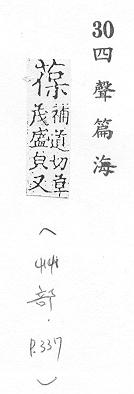 30四聲篇海
葆
補道切草
茂盛皃又
（艸部．P.337）